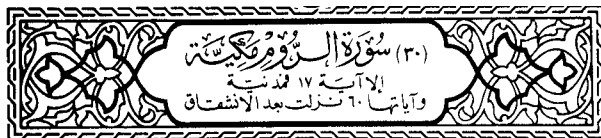 (٣٠) سُورَةُ الرُّومِ مَكِّيَّة
إلا آية ١٧ فمدنية
وآياتها ٦٠ نزلت بعد الانشقاق